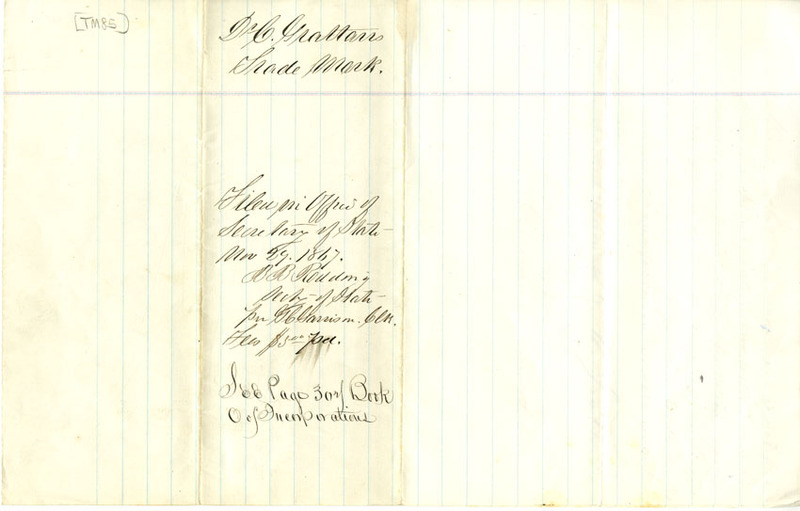 [TM85]
Dr C. Grattans
Trade Mark.
Filed in Office of
Secretary of State
Nov 29. 1867.
B B Redding
Secty of State
per Garrison. Clk.
Fees $3 00 pd.
See Page 307 Book
of Incorporations